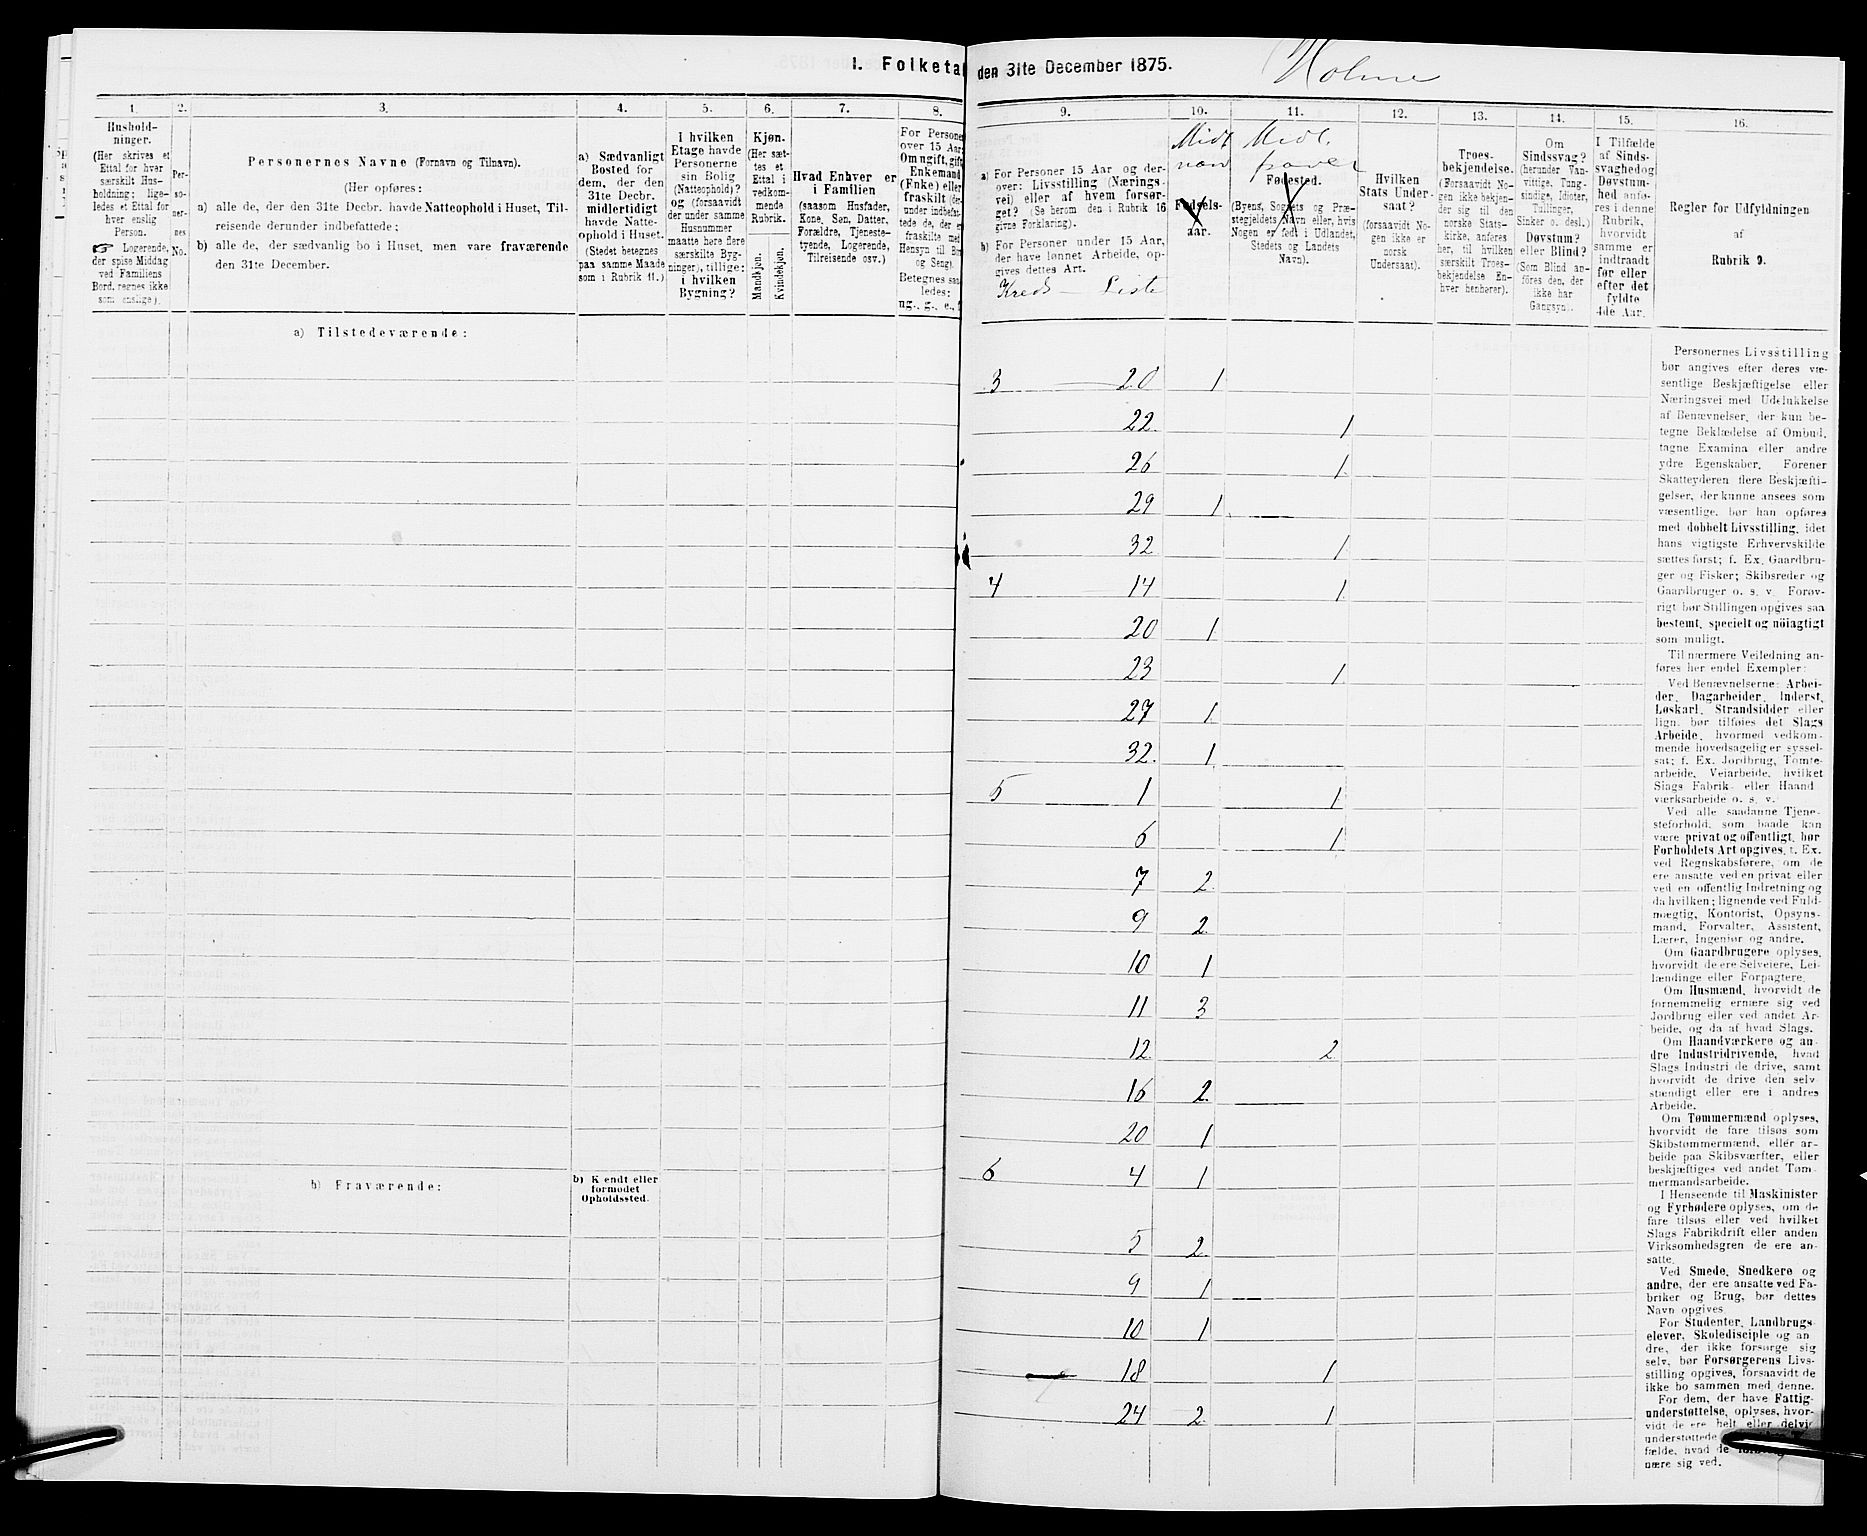 I. Folketal den 31te December 1875.
Holme
1.
Husholdninger.
(Her skrives et
Ettal for hver
særskilt Husholdning;
ligeledes et Ettal for
hver enslig
Person.
☞ Logerende,
der spise Middag
ved Familiens
Bord, regnes ikke
som enslige).
2.
Personernes
No.
3.
Personernes Navne (Fornavn og Tilnavn).
(Her opføres:
a) alle de, der den 31te Decbr. havde Natteophold i Huset, Tilreisende
derunder indbefattede;
b) alle de, der sædvanlig bo i Huset, men vare fraværende
den 31te December.
4.
a) Sædvanligt
Bosted for
dem, der den
31te Decbr.
midlertidigt
havde Natteophold
i Huset.
(Stedet betegnes
paa samme Maade
som i Rubrik 11.)
5.
I hvilken
Etage havde
Personerne
sin Bolig
(Natteophold)?
og (forsaavidt
der under samme
Husnummer
maatte være flere
særskilte Bygninger),
tillige:
i hvilken
Bygning?
6.
Kjøn.
(Her sættes
et
Ettal i
vedkommende
Rubrik.
Mandkjøn.
Kvindekjøn.
7.
Hvad Enhver er
i Familien
(saasom Husfader,
Kone, Søn, Datter,
Forældre, Tjenestetyende,
Logerende,
Tilreisende osv.)
8.
For Personer
over 15 Aar:
Om ugift, gift,
Enkemand
(Enke) eller
fraskilt
Betegnes saaledes:
ug., g., e., f.
9.
a) For Personer 15 Aar og derover:
Livsstilling (Næringsvei)
eller af hvem forsørget?
(Se herom den i Rubrik 16
givne Forklaring).
b) For Personer under 15 Aar,
der have lønnet Arbeide, opgives
dettes Art.
Kreds — Liste
10.
Midt
Fødselsaar.
11.
Midl.
fravær
Fødested.
(Byens, Sognets og Præstegjeldets
Navn eller, hvis
Nogen er født i Udlandet,
Stedets og Landets
Navn).
12.
Hvilken
Stats Undersaat?
(forsaavidt Nogen
ikke er
norsk
Undersaat).
13.
Troesbekjendelse.
(Forsaavidt Nogen
ikke bekjender
sig til den
norske Statskirke,
anføres
her, til hvilken
særskilt Troesbekjendelse
Enhver
henhører).
14.
Om
Sindssvag?
(herunder Vanvittige,
Tungsindige,
Idioter,
Tullinger,
Sinker o. desl.)
Døvstum?
eller Blind?
(Som Blind anføres
den, der
ikke har
Gangsyn).
15.
I Tilfælde
af Sindssvaghed
og
Døvstumhed
anføres
i denne
Rubrik,
hvorvidt
samme er
indtraadt
før eller
efter det
fyldte
4de Aar.
16.
Regler for Udfyldningen
af
Rubrik 9.
a) Tilstedeværende:
3 — 20 1
22. 1
26 1
29 1
32 1
4 — 14 1
20 1
23 1
27 1
32. 1
5 — 1 1
6 1
7 2
9 2
10 1
11 3
12 2
16 2
20 1
b) Fraværende:
b) Kjendt eller
formodet
Opholdssted.
6 4 1
5 2
9 1
10 1
18 1
24 2 1
Personernes Livsstilling
bør angives efter deres væsentlige
Beskjæftigelse eller
Næringsvei med Udelukkelse
af Benævnelser, der kun betegne
Beklædelse af Ombud,
tagne Examina eller andre
ydre Egenskaber. Forener
Skatteyderen flere Beskjæftigelser,
der kunne ansees som
væsentlige, bør han opføres
med dobbelt Livsstilling, idet
hans vigtigste Erhvervskilde
sættes først; f. Ex. Gaardbruger
og Fisker; Skibsreder og
Gaardbruger o. s. v. Forøvrigt
bør Stillingen opgives saa
bestemt, specielt og nöiagtigt
som muligt.
Til nærmere Veiledning anføres
her endel Exempler:
Ved Benævnelserne: Arbeider,
Dagarbeider, Inderst,
Løskarl, Strandsidder eller
lign. bør tilføies det Slags
Arbeide, hvormed vedkommende
hovedsagelig er sysselsat;
f. Ex. Jordbrug, Tomtearbeide,
Veiarbeide, hvilket
Slags Fabrik- eller Haandværksarbeide
o. s. v.
Ved alle saadanne Tjenesteforhold,
som baade kan
være privat og offentligt, bør
Forholdets Art opgives, f. Ex.
ved Regnskabsførere, om de
ere ansatte ved en privat eller
ved en offentlig Indretning og
da hvilken; lignende ved Fuldmægtig,
Kontorist, Opsynsmand,
Forvalter, Assistent,
Lærer, Ingeniør og andre.
Om Gaardbrugere oplyses,
hvorvidt de ere Selveiere, Leilændinge
eller Forpagtere.
Om Husmænd, hvorvidt de
fornemmelig ernære sig ved
Jordbrug eller ved andet Arbeide,
og da af hvad Slags.
Om Haandværkere og andre
Industridrivende, hvad
Slags Industri de drive, samt
hvorvidt de drive den selvstændigt
eller ere i andres
Arbeide.
Om Tømmermænd oplyses,
hvorvidt de fare tilsøs som
Skibstømmermænd, eller arbeide
paa Skibsværfter, eller
beskjæftiges ved andet Tømmermandsarbeide.
I Henseende til Maskinister
og Fyrbødere oplyses, om de
fare tilsøs eller ved hvilket
Slags Fabrikdrift eller anden
Virksomhedsgren de ere ansatte.
Ved Smede, Snedkere og
andre, der ere ansatte ved Fabriker
og Brug, bør dettes
Navn opgives.
For Studenter, Landbrugselever,
Skoledisciple og andre,
der ikke forsørge sig
selv, bør Forsørgerens Livsstilling
opgives, forsaavidt de
ikke bo sammen med denne.
For dem, der have Fattigunderstøttelse,
oplyses, hvorvidt
de ere helt eller delvis
understøttede